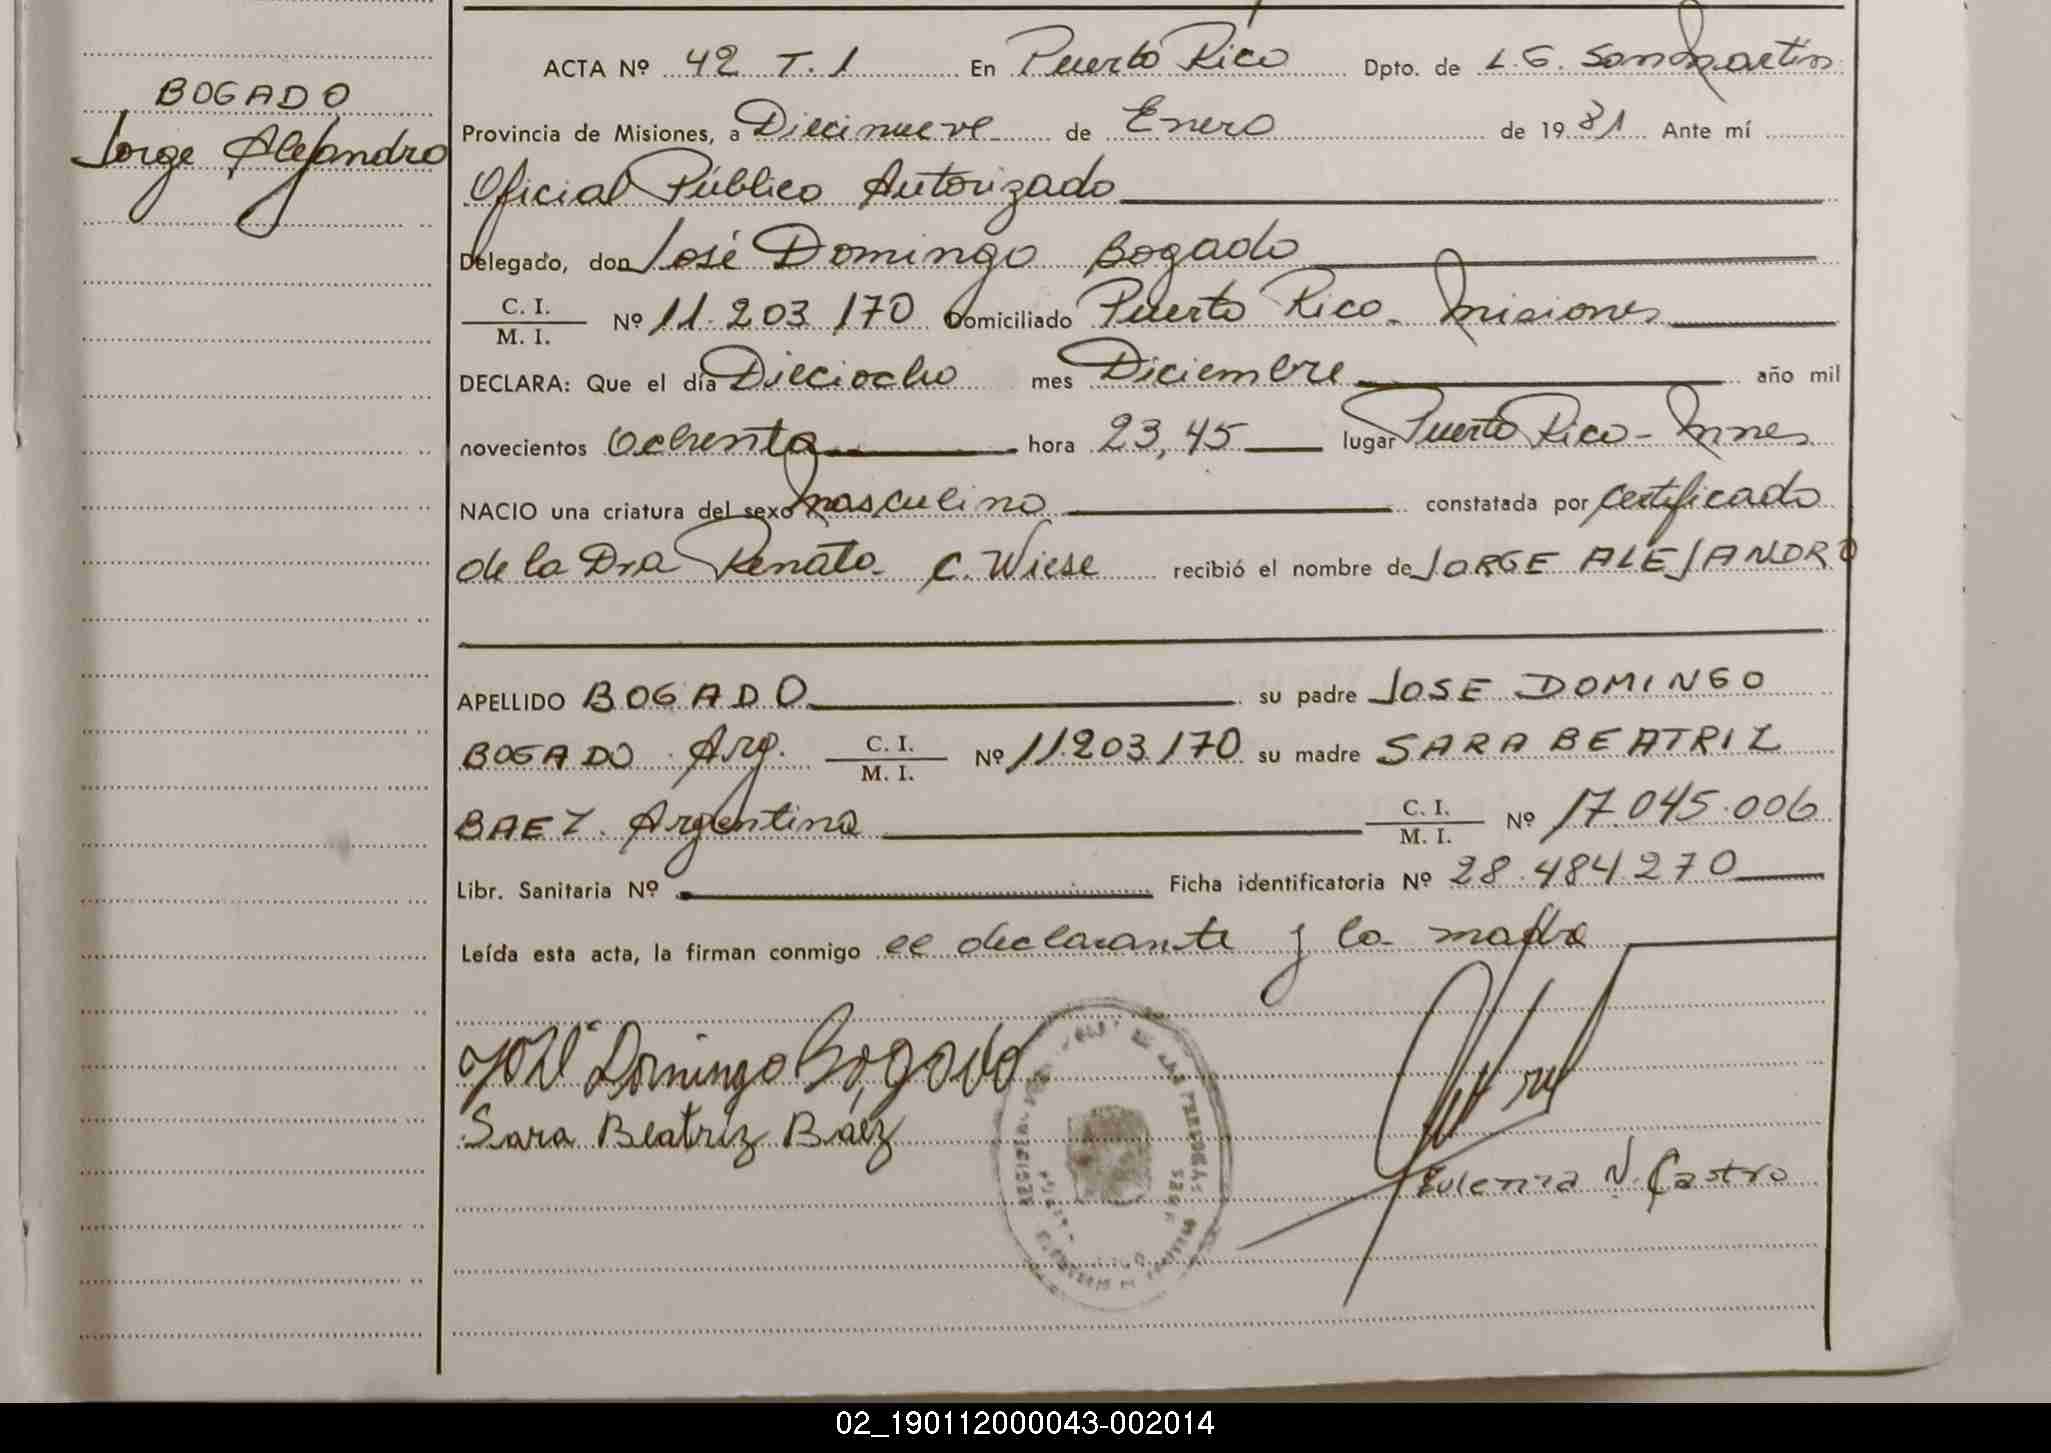 BOGADO
Jorge Alejandro
ACTA Nº 42 T. 1 En Puerto Rico Dpto. de L.G. San Martín
Provincia de Misiones, a Diecinueve de Enero de 1981 Ante mí
Oficial Público Autorizado
Delegado, don José Domingo Bogado
C. I.
M. I.
Nº 11.203.170 Domiciliado Puerto Rico - Misiones
DECLARA: Que el día Dieciocho mes Diciembre año mil
novecientos Ochenta hora 23,45 lugar Puerto Rico - Mnes
NACIO una criatura del sexo masculino constatada por certificado
de la Dra Renata C. Wiese recibió el nombre de JORGE ALEJANDRO
APELLIDO BOGADO su padre JOSE DOMINGO
BOGADO Arg. C. I. M. I. Nº 11.203.170 su madre SARA BEATRIZ
BAEZ. Argentina C. I. M. I. Nº 17.045.006
Libr. Sanitaria Nº Ficha identificatoria Nº 28.484.270
Leída esta acta, la firman conmigo el declarante y la madre
José Domingo Bogado
Sara Beatriz Báez
N. Castro
02_190112000043-002014